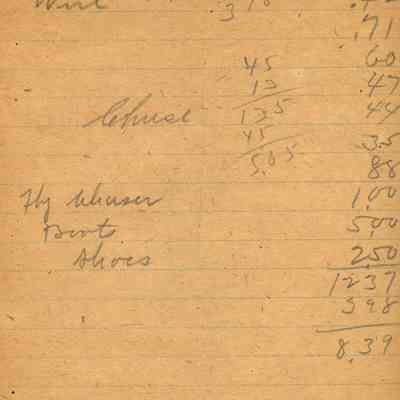 Wire .3
.71
45 60
13 .47
Chuse 135 44
45 35
5.85 88
Fly Chuser 1.00
Boots 5.00
Shoes 2.50
12 37
3 98
8.39